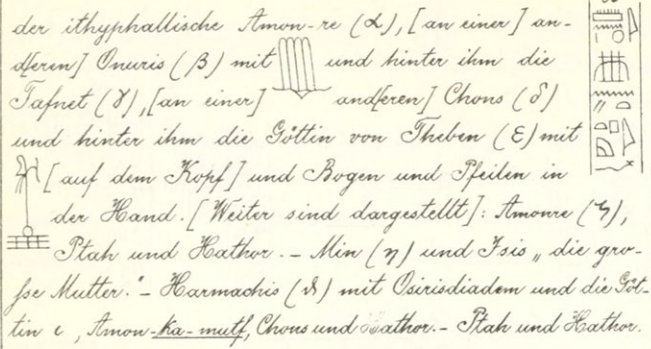 der ithyphallische Amon-re (α), [an einer] an-
d[eren] Onuris (β) mit und hinter ihm die
Tafnet (γ), [an einer] and[eren] Chons (δ)
und hinter ihm die Göttin von Theben (ε) mit
[auf dem Kopf] und Bogen und Pfeilen in
der Hand. [Weiter sind dargestellt]: Amonre (ζ),
Ptah und Hathor. – Min (η) und Isis „die gro-
ſse Mutter." – Harmachis (ϑ) mit Osirisdiadem und die Göt-
tin ι, Amon-ka-mutf, Chons und Hathor. – Ptah und Hathor.